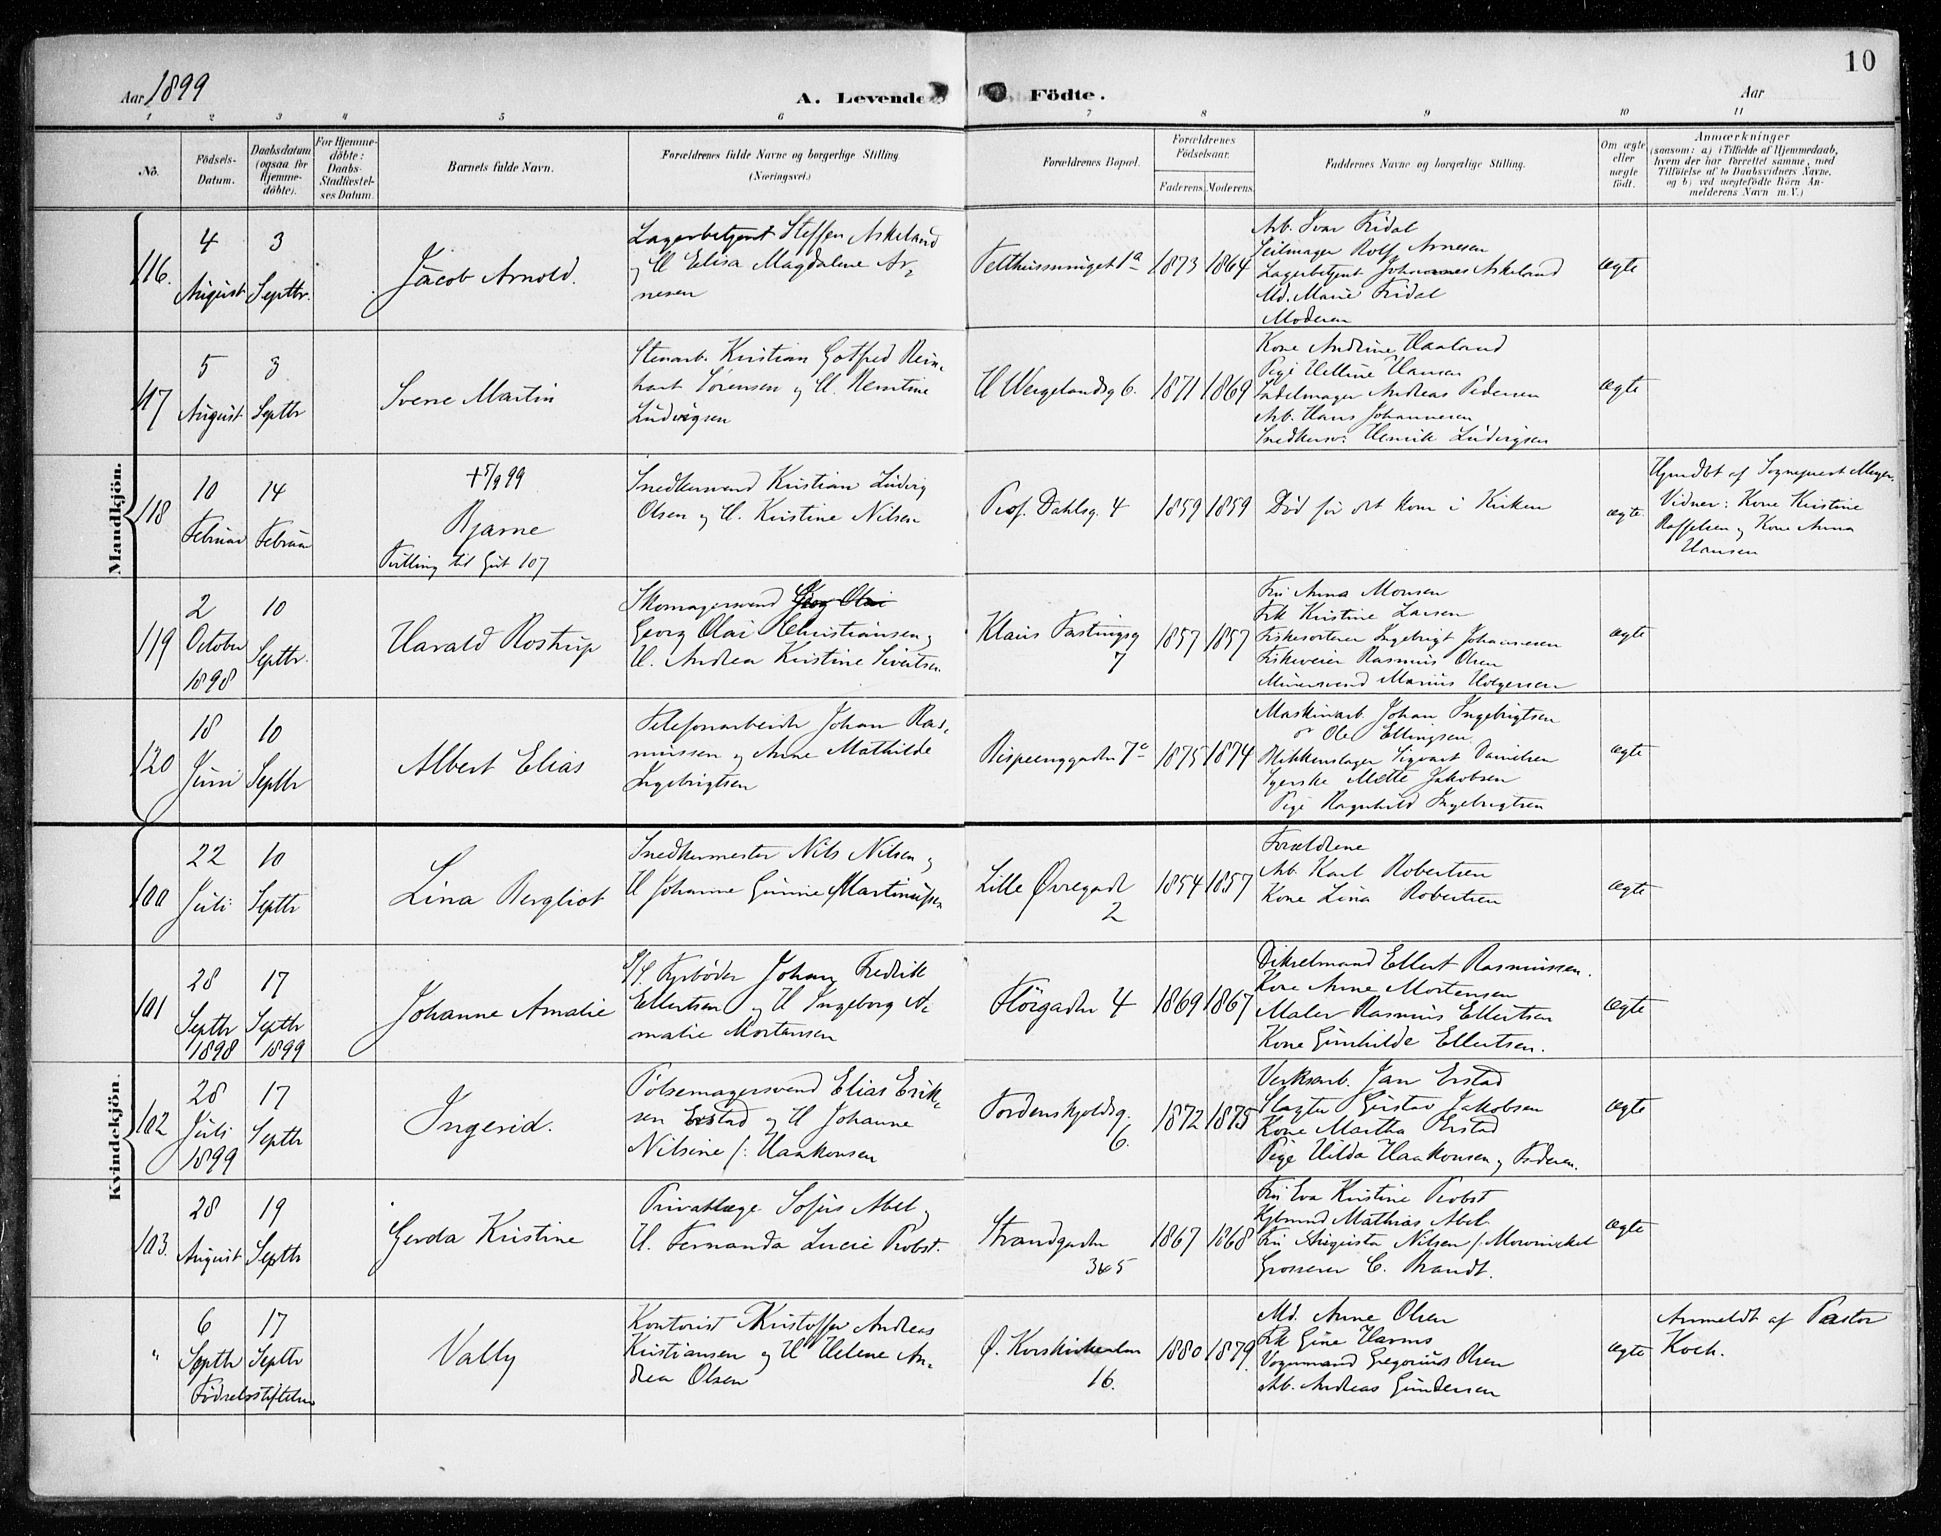 10
Aar 1899
A. Levende Födte.
Aar
1 2 3 4 5 6 7 8 9 10 11
No.
Födsels-
Datum.
Daabsdatum
(ogsaa for
Hjemme-
döbte).
For Hjemme-
döbte:
Daabs-
Stadfæstel-
ses Datum.
Barnets fulde Navn.
Forældrenes fulde Navne og borgerlige Stilling
(Næringsvei.)
Forældrenes Bopæl.
Forældrenes
Födselsaar.
Faderens. Moderens.
Faddernes Navne og borgerlige Stilling.
Om ægte
eller
uægte
födt.
Anmærkninger
(saasom: a) i Tilfælde af Hjemmedaab,
hvem der har forrettet samme, med
Tilföielse af to Daabsvidners Navne,
og b) ved uægtefödte Börn An-
melderens Navn m. V.)
Mandkjön.
116.
4
August
3
Septbr.
Jacob Arnold.
Lagerbetjent Steffen Askeland
og H Elisa Magdalene Ar-
nesen
1a
1873 1864
Arb. Ivar Fridal
Seilmager Rolf Arnesen
Lagerbetjent Johannes Askeland
Md. Marie Fridal
Moderen
ægte
117
5
August
3
Septbr
Sverre Martin
Stenarb. Kristian Gotfred Rein-
hart Sørensen og H.
Ludvigsen
H Wergelandsg 6.
1871 1869
Kone Andrine Haaland
Pige Helline Hansen
Sadelmager Andreas Pedersen
Arb. Hans Johannesen
Snedkersv. Henrik Ludvigsen
ægte
118
10
Februar
14
Februar
+5/9 99
Bjarne
Tvilling til Gut 107
Snedkersvend Kristian Ludvig
Olsen og H. Kristine Nilsen
Prof. Dahlsg. 4
1859 1859
Død før det kom i Kirken
ægte
Hjmdbt af Sogneprest Meyer.
Vidner: Kone Kristine
Roffelsen og Kone Anna
Hansen
119
2
October
1898
10
Septbr.
Harald Rostrup
Skomagersvend Georg Olai
Georg Olai Christiansen og
H. Andrea Kristine Sivertsen.
Klaus Fastingsg
7
1857 1857
Fru Anna Monsen
Frk Kristine Larsen
Fiskesorterer Ingebrigt Johannesen
Fiskeveier Rasmus Olsen
Murersvend Marius Holgersen
ægte
120
18
Juni
10
Septbr
Albert Elias
Telefonarbeider Johan Ras-
mussen og Anne Mathilde
Ingebrigtsen
Bispeenggaden 7c
1875 1874
Maskinarb. Johan Ingebrigtsen
Ole Ellingsen
Blikkenslager Sigvart Danielsen
Syerske Mette Jakobsen
Pige Ragnhild Ingebrigtsen
ægte
Kvindekjön.
100
22
Juli
10
Septbr
Lina Bergliot
Snedkermester Nils Nilsen og
H Johanne Gunine Martinussen
Lille Øvregade
2
1854 1857
Forældrene
Arb. Karl Robertsen
Kone Lina Robertsen
ægte
101
28
Septbr
1898
17
Septbr
1899
Johanne Amalie
S/S. Fyrbøder Johan Fredrik
Ellertsen og H Ingeborg A-
malie Mortensen
Flörgaden 4
1869 1867
Dikselmand Ellert Rasmussen.
Kone Anne Mortensen
Maler Rasmus Ellertsen
Kone Gunhilde Ellertsen.
ægte
102
28
Juli
1899
17
Septbr
Ingerid.
Pølsemagersvend Elias Erik-
sen Erstad og H Johanne
Nilsine f: Haakonsen
Tordenskjoldsg.
6.
1872 1875
Verksarb. Jan Erstad
Slagter Gustav Jakobsen
Kone Martha Erstad
Pige Hilda Haakonsen og Faderen.
ægte
103.
28
August
19
Septbr
Gerda Kristine
Privatlæge Sofus Abel og
H. Fernanda Lucie Probst.
Strandgaden
1867 1868
Fru Eva Kristine Probst
Kjbmnd Mathias Abel
Fru Augusta Nilsen f. Mowinckel
Grosserer C. Brandt.
ægte
"
6
Septbr
17
Septbr
Födselsstiftelsen
Vally
Kontorist Kristoffer Andreas
Kristiansen og H Helene An-
drea Olsen
Ø. Korskirkealm
16.
1880 1879.
Md. Anne Olsen
Frk Gine Harms
Vognmand Gregorius Olsen
Arb. Andreas Gundersen
ægte
Anmeldt af Pastor
Koch.